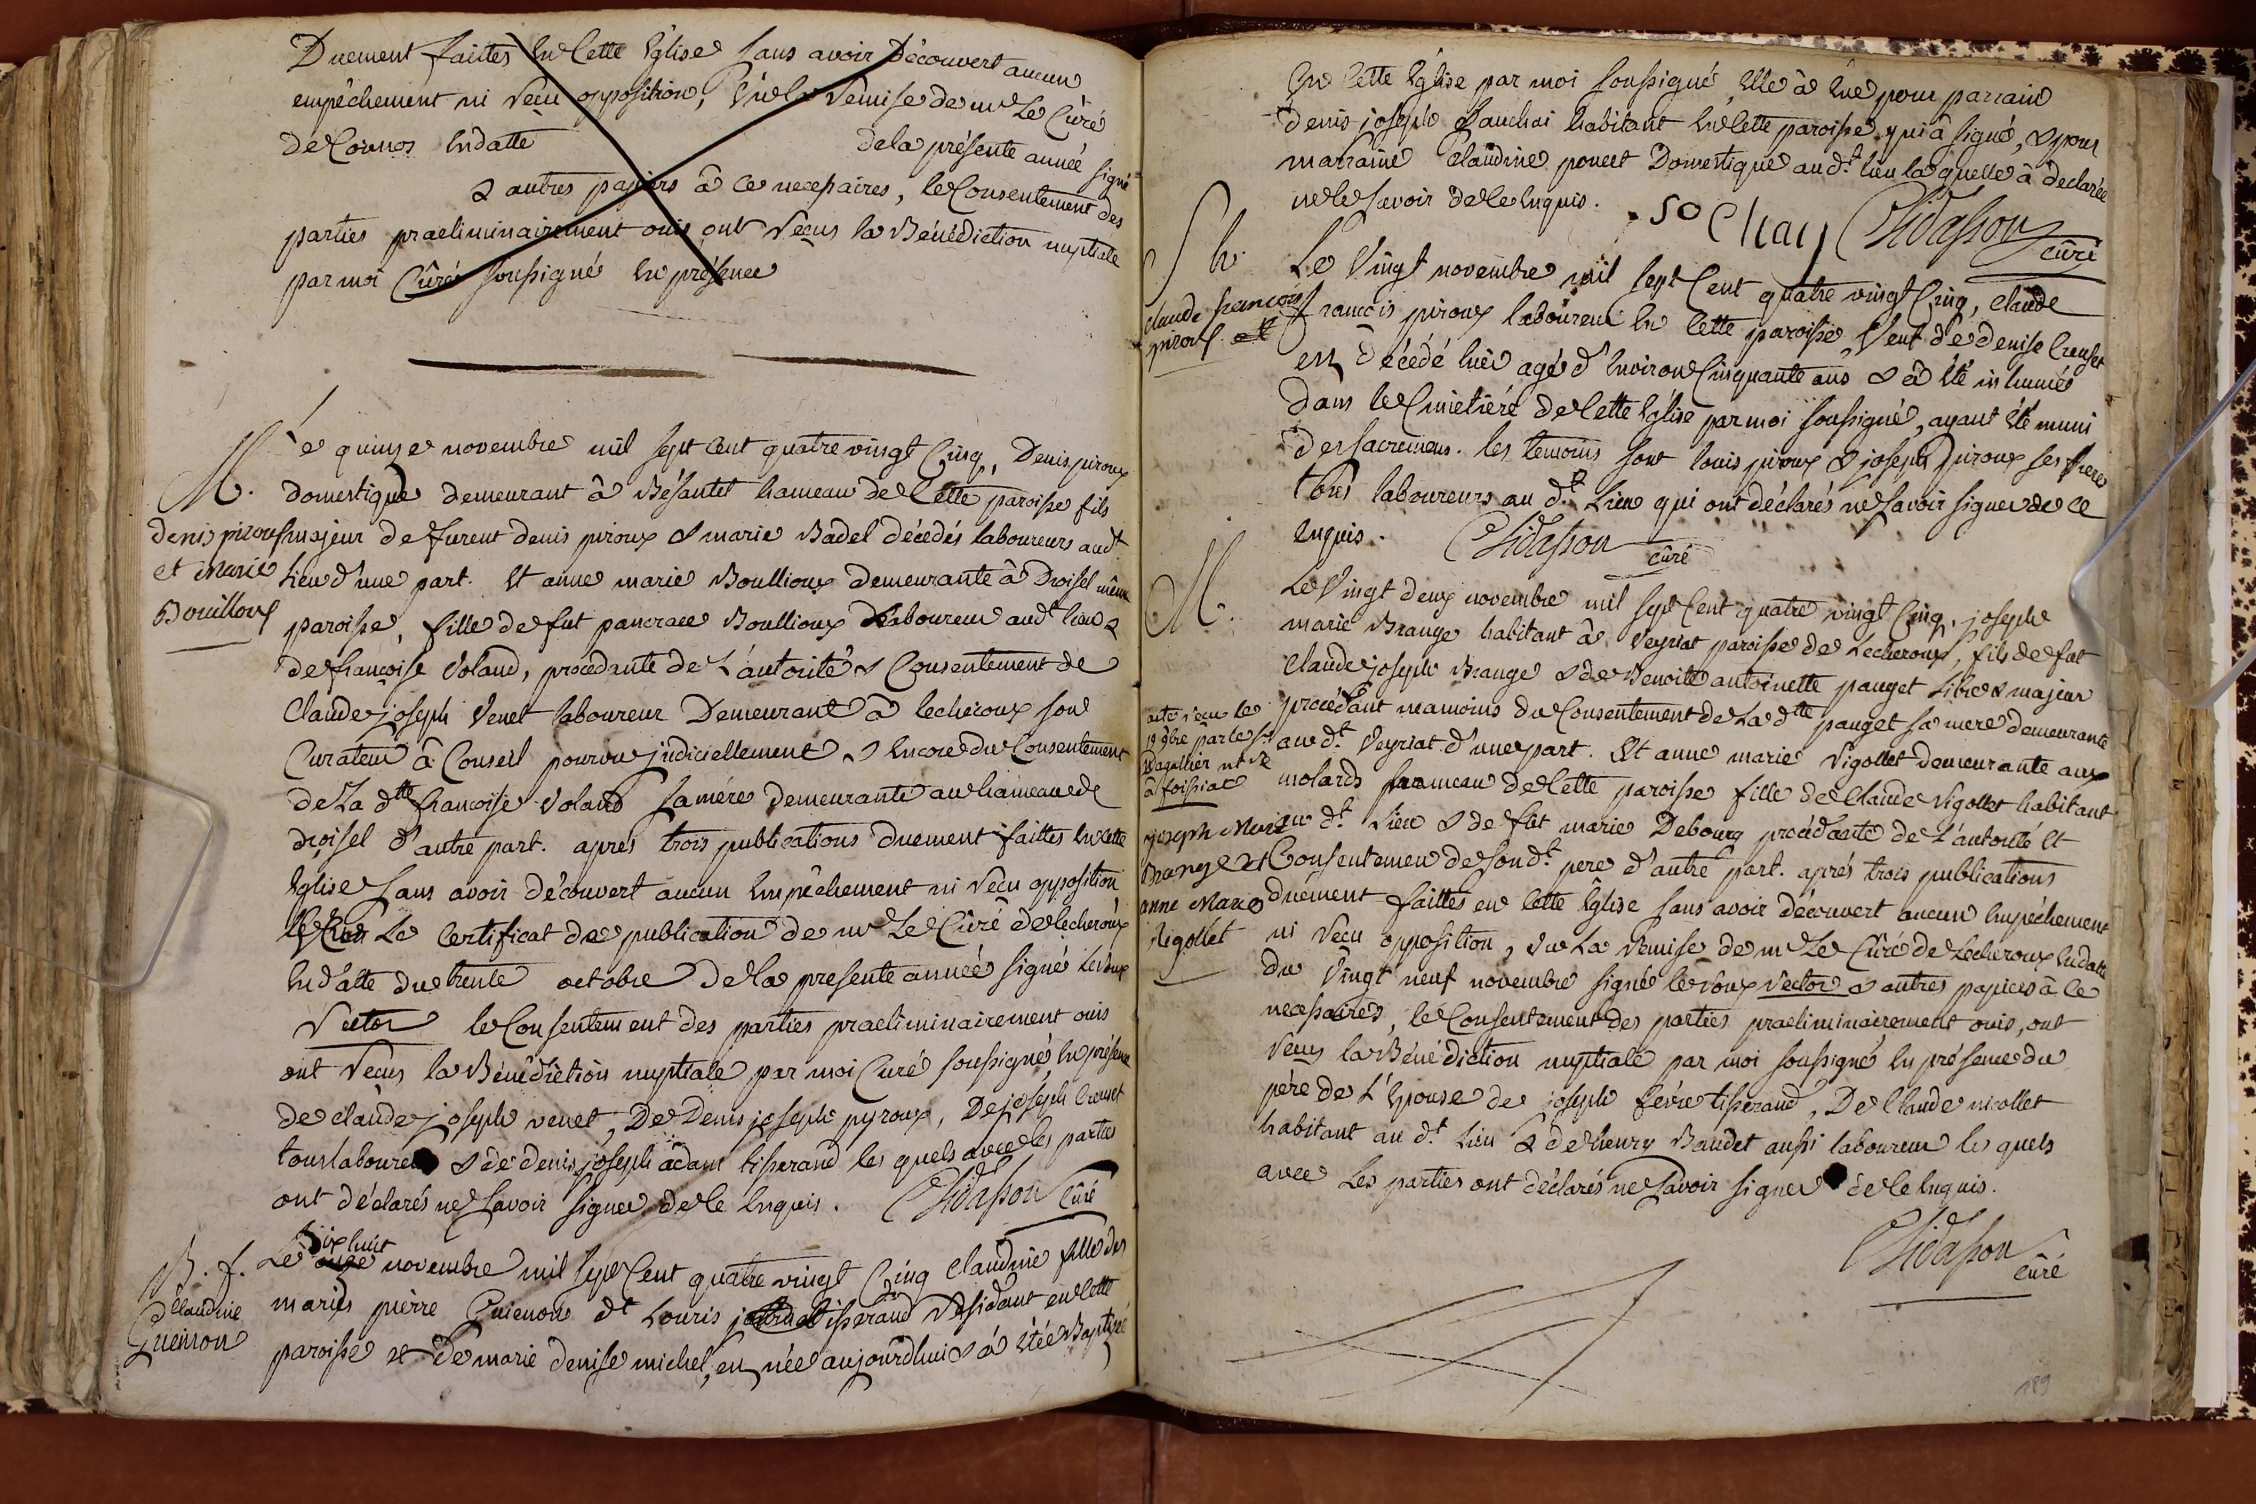 Duement faites en Cette Eglise sans avoir Découvert aucun
empêchement ni reçu opposition, vu la remise de mr Le Curé
de Cormos en datte de la présente année signé
& autres papiers à ce necessaires, le Consentement des
parties praeliminairement ouis ont reçus la Bénédiction nuptiale
par moi Curé soussigné en présence
M.
denis piroux
et Marie
Bouilloux
Le quinze novembre mil sept cent quatre vingt Cinq, Denis piroux
domestique demeurant à Bésantet hameau de Cette paroisse fils
majeur de furent denis piroux & marie Badel décédés laboureurs audt
lieu d'une part. Et anne marie Boullioux demeurante à Droisel même
paroisse, fille de fut pancrace Boullioux Laboureur audt lieu &
de françoise Voland, procedante de L'autorité & Consentement de
Claude joseph Venet laboureur Demeurant à lecheroux son
Curateur à Conseil pourvu judiciellement & encore du Consentement
de La dtte francoise Voland sa mére demeurante au hameau de
droisel d'autre part. aprés trois publications duement faittes en cette
Eglise sans avoir découvert aucun empêchement ni reçu opposition
Le Certificat de publication de mr Le Curé de lecheroux
en datte du trente octobre de la presente année signé Leroux
Rector le Consentement des parties praeliminairement ouis
ont reçus la Bénédiction nuptiale par moi Curé soussigné en présence
de claude joseph venet, De Denis joseph pyroux, De joseph Creuset
tous laboureurs & de denis joseph adam tisserand les quels avec les parties
ont déclarés ne savoir signer de ce enquis. Chidasson Curé
B. f.
Claudine
Guenon
Le dix huit novembre mil sept Cent quatre vingt Cinq Claudine fille des
mariés pierre Guienon dt Louris tisserand Residant en cette
paroisse et de marie denise michel, est née aujourdhui & à étée Baptisé
En cette Eglise par moi soussigné, Elle à eue pour parrain
denis joseph Sauchai habitant en cette paroisse qui à signé, & pour
marraine Claudine poncet Domestique audt lieu laquelle à declarée
ne le savoir de ce enquis. So Chay Chidasson curé
Sh.
Claude francois
piroux
Le Vingt novembre mil sept Cent quatre vingt Cinq, Claude
francois piroux laboureur en cette paroisse, Veuf de denise Creuset
est décédé hier agé d'environ Cinquante ans & à été inhumé
dans le Cimetiére de Cette Eglise par moi soussigné, ayant été muni
des sacremens. les temoins sont louis piroux & joseph piroux ses freres
tous laboureurs au dt Lieu qui ont déclarés ne savoir signer de ce
enquis. Chidasson curé
M.
acte reçu le
19 9bre par le sr
Ragallier nt R
à foissiat
joseph Marie
Brange et
anne Marie
Rigollet
Le Vingt deux novembre mil sept Cent quatre vingt Cinq, joseph
marie Brange habitant à Veyriat paroisse de Lecheroux, fils de fut
Claude joseph Brange & de Benoitte antoinette pauget Libre & majeur
procédant neamoins du Consentement de La dtte pauget sa mere demeurante
au dt Veyriat d'une part. Et anne marie Rigollet demeurante aux
molards hameau de Cette paroisse fille de Claude Rigollet habitant
au dt Lieu & de fut marie Debourg procédante de L'autorité et
Consentement de son dt pere d'autre part. aprés trois publications
duement faittes en cette Eglise sans avoir découvert aucun Empêchement
ni reçu opposition, vu La remise de mr Le Curé de Lecheroux en datte
du Vingt neuf novembre signé leroux rector & autres papiers à ce
necessaires, le Consentement des parties praeliminairement ouis, ont
reçus la Bénédiction nuptiale par moi soussigné en présence du
pére de L'Epouse de joseph févre tisserand, De Claude nicollet
habitant au dt Lieu & de henry Baudet aussi laboureur les quels
avec Les parties ont déclarés ne savoir signer de ce enquis.
Chidasson
curé
189